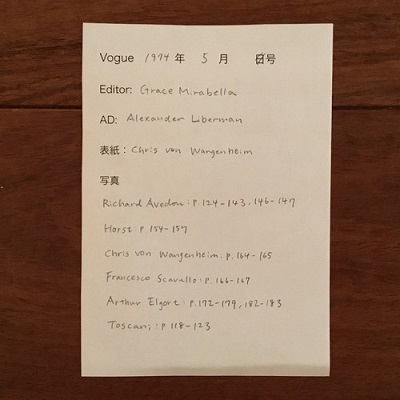 Vogue 1974 年 5 月 日号
Editor: Grace Mirabella
AD: Alexander Liberman
表紙： Chris von Wangenheim
写真
Richard Avedon: P.124-143, 146-147
Horst: P 154-157
Chris von Wangenheim: p.164-165
Francesco Scavullo: p.166-167
Arthur Elgort: p.172-179, 182-183
Toscani: p.118-123